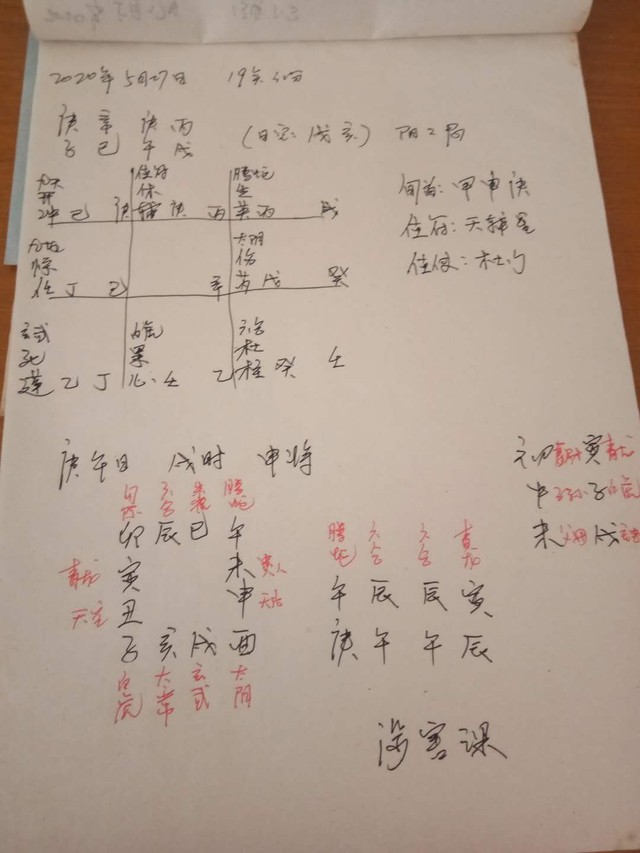 2020年5月27日 19点
庚 辛 庚 丙
子 巳 午 戌
(日空:戌亥) 阳2局
旬首:甲申庚
值符:天辅星
值使:杜门
九天 值符 腾蛇
开 休 生
冲 己 庚 辅 庚 丙 英 丙 戊
九地 太阴
惊 伤
任 丁 己 辛 芮 戊 癸
玄武 白虎 六合
死 景 杜
蓬 乙 丁 心 壬 乙 柱 癸 壬
庚午日 戌时 申将
六合 朱雀 腾蛇
卯 辰 巳 午
青龙 寅 未 贵人
天空 丑 申 天后
子 亥 戌 酉
白虎 太常 玄武 太阴
腾蛇 六合 六合 青龙
午 辰 辰 寅
庚 午 午 辰
初 妻财 寅 青龙
中 子孙 子 白虎
末 父母 戌 玄武
涉害课